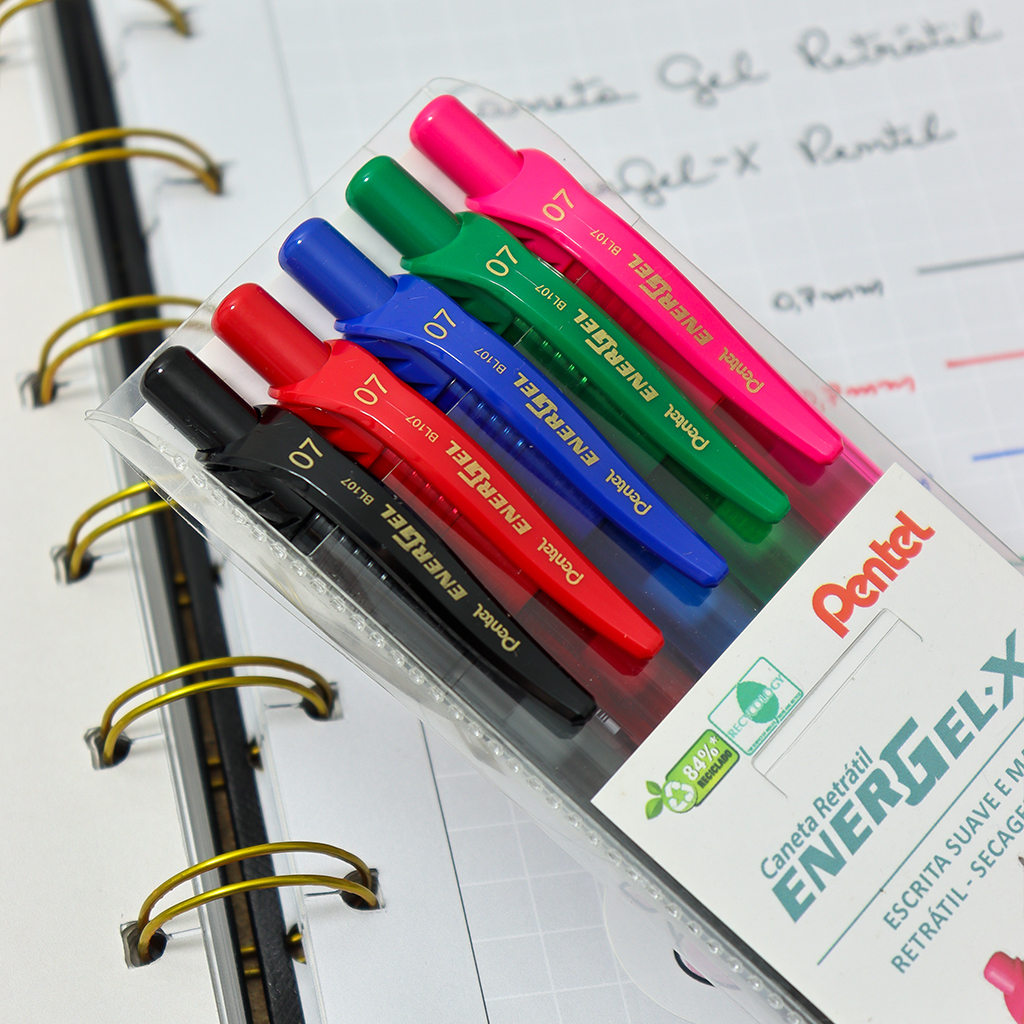 Caneta Gel Retrátil
gel-X Pentel
0,7 mm
0,7 mm
07 BL107 ENERGEL Pentel
07 BL107 ENERGEL Pentel
07 BL107 ENERGEL Pentel
07 BL107 ENERGEL Pentel
07 BL107 ENERGEL Pentel
Pentel
RECYCOLOGY
84%*
RECICLADO
Caneta Retrátil
ENERGEL·X
ESCRITA SUAVE E
RETRÁTIL - SECAGE